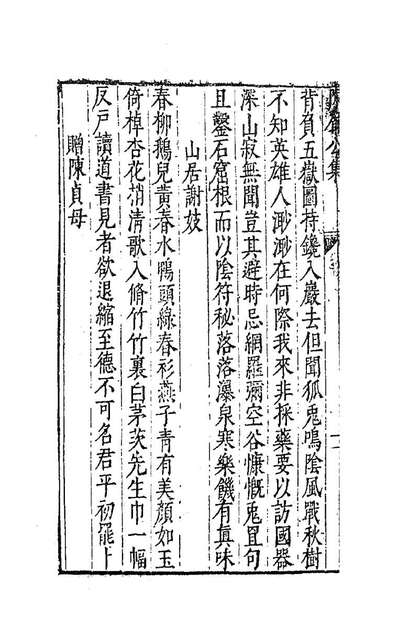 背負五嶽圖持鑱入巖去但聞狐兎鳴陰風戰秋樹
不知英雄人渺渺在何際我來非採藥要以訪國器
深山寂無聞豈其避時忌網羅彌空谷慷慨兎罝句
且鑿石窟根而以陰符秘落落瀑泉寒樂饑有真味
山居謝妓
春柳鵝兒黃春水鴨頭綠春衫燕子青有美顏如玉
倚棹杏花梢清歌入脩竹竹裏白茅茨先生巾一幅
反戸讀道書見者欲退縮至德不可名君平初罷卜
贈陳貞母